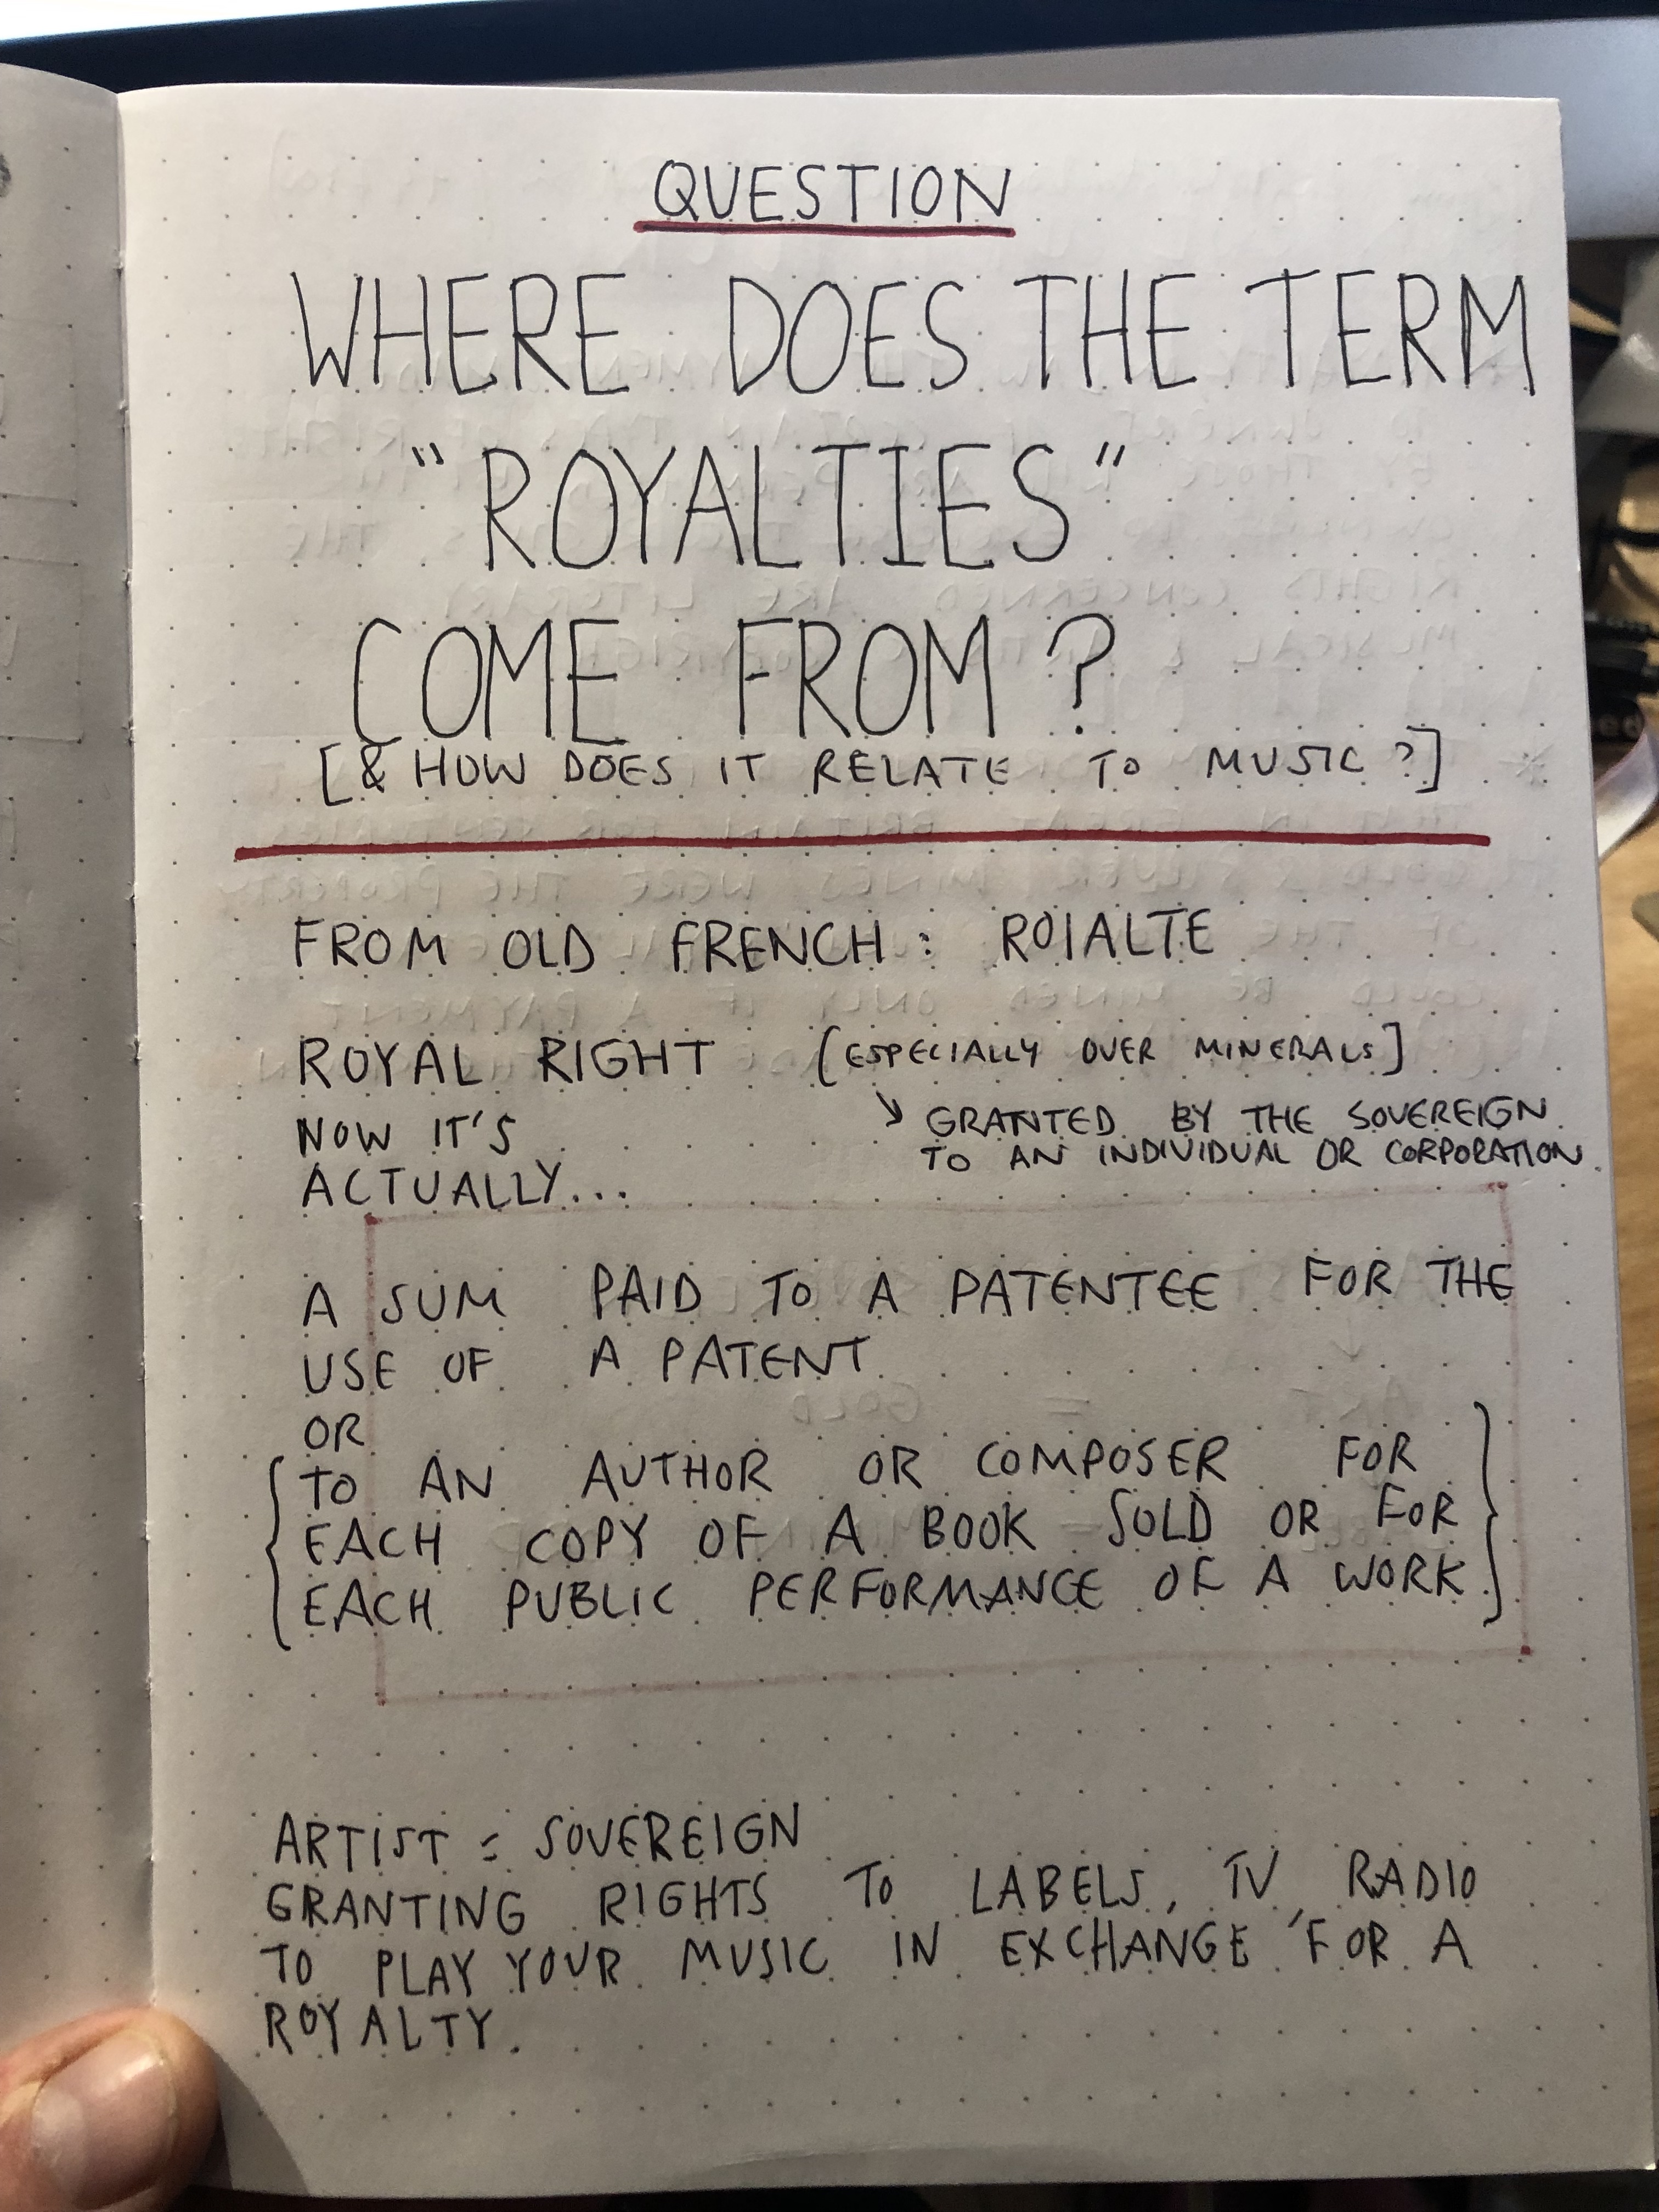 QUESTION
WHERE DOES THE TERM
"ROYALTIES"
COME FROM?
[& HOW DOES IT RELATE TO MUSIC?]
FROM OLD FRENCH: ROIALTE
ROYAL RIGHT [ESPECIALLY OVER MINERALS]
↘ GRANTED BY THE SOVEREIGN
TO AN INDIVIDUAL OR CORPORATION.
NOW IT'S
ACTUALLY...
A SUM PAID TO A PATENTEE FOR THE
USE OF A PATENT
OR
{TO AN AUTHOR OR COMPOSER FOR
EACH COPY OF A BOOK SOLD OR FOR
EACH PUBLIC PERFORMANCE OF A WORK}
ARTIST = SOVEREIGN
GRANTING RIGHTS TO LABELS, TV, RADIO
TO PLAY YOUR MUSIC IN EXCHANGE FOR A
ROYALTY.